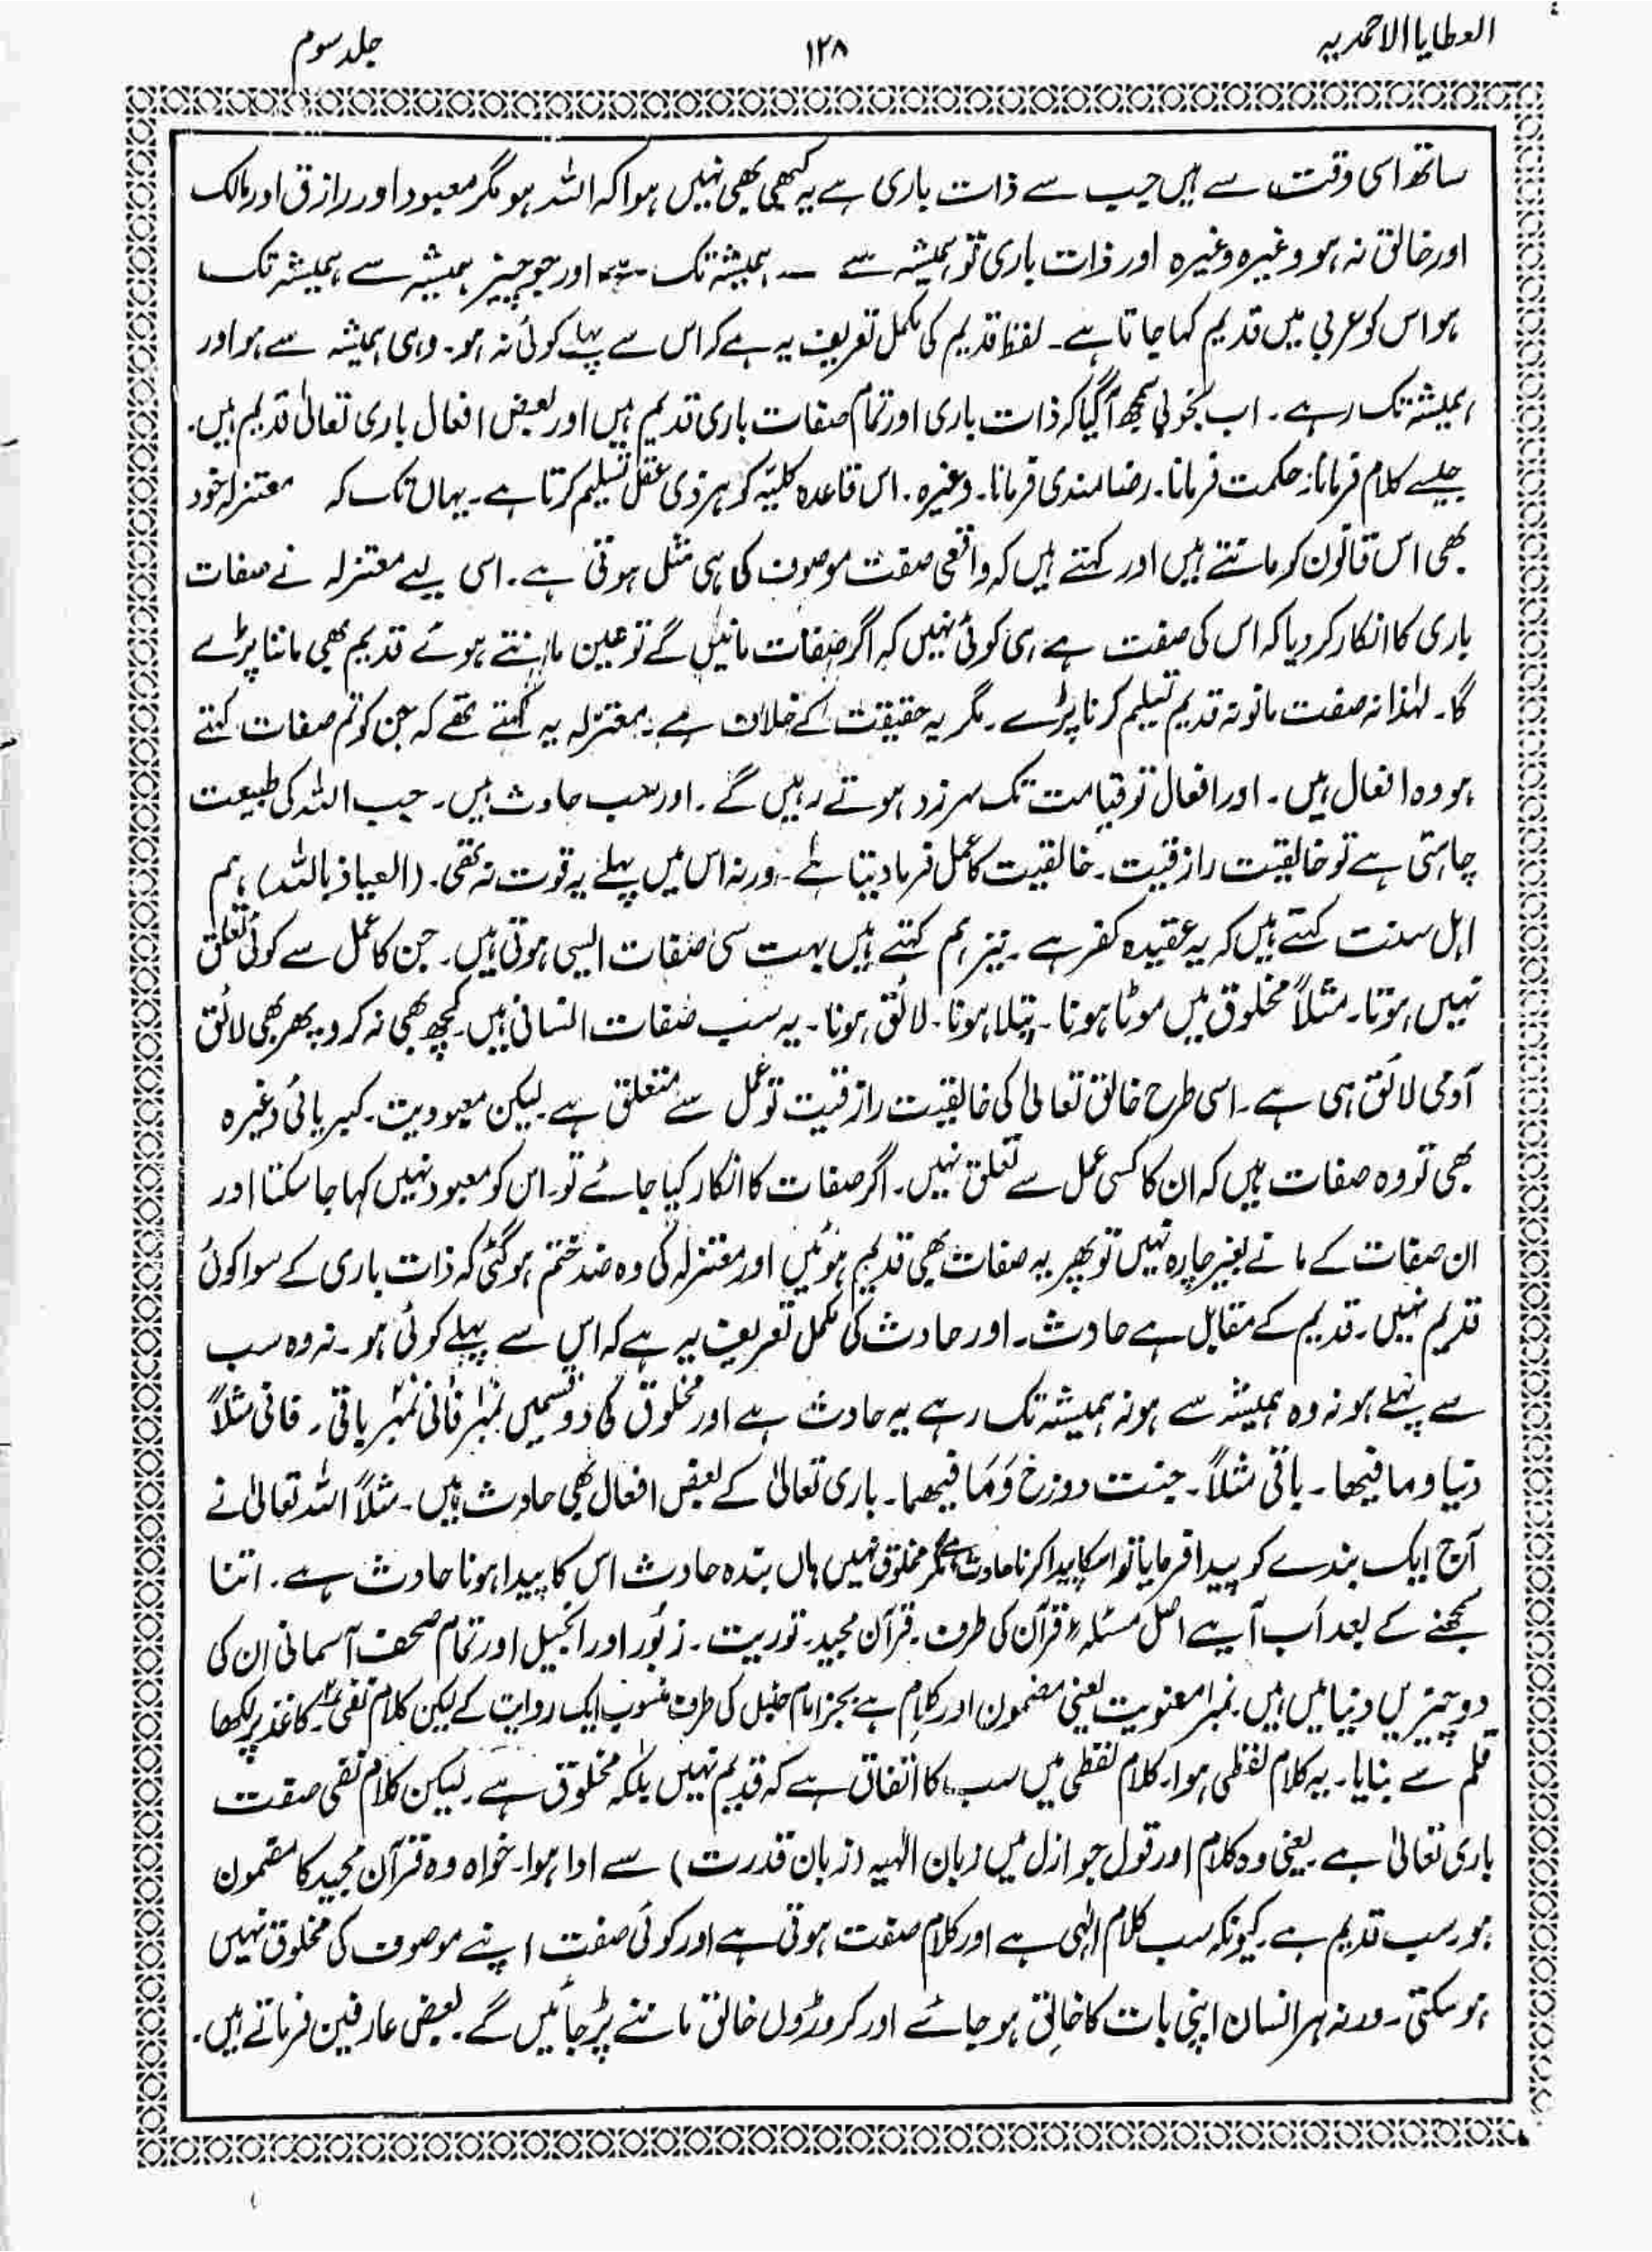 العطایا الاحمدیہ
۱۲۸
جلد سوم
ساتھ اسی وقت سے ہیں جب سے ذات باری ہے یہ کبھی بھی نہیں ہوا کہ اللہ ہو مگر معبود اور رازق اور مالک
اور خالق نہ ہو وغیرہ وغیرہ اور ذات باری تو ہمیشہ سے ہمیشہ تک ہے اور جو چیز ہمیشہ سے ہمیشہ تک
ہو اس کو عربی میں قدیم کہا جاتا ہے۔ لفظ قدیم کی مکمل تعریف یہ ہے کہ اس سے پہلے کوئی نہ ہو۔ وہی ہمیشہ سے ہو اور
ہمیشہ تک رہے۔ اب بخوبی سمجھ آ گیا کہ ذات باری اور تمام صفات باری قدیم ہیں اور بعض افعال باری تعالیٰ قدیم ہیں۔
جیسے کلام فرمانا۔ حکمت فرمانا۔ رضامندی فرمانا۔ وغیرہ۔ اس قاعدہ کلیہ کو ہر ذی عقل تسلیم کرتا ہے۔ یہاں تک کہ معتزلہ خود
بھی اس قانون کو مانتے ہیں اور کہتے ہیں کہ واقعی صفت موصوف کی ہی مثل ہوتی ہے۔ اسی لیے معتزلہ نے صفات
باری کا انکار کر دیا کہ اس کی صفت ہے ہی کوئی نہیں کہ اگر صفات مانیں گے تو عین مانتے ہوئے قدیم بھی ماننا پڑے
گا۔ لہٰذا نہ صفت مانو نہ قدیم تسلیم کرنا پڑے۔ مگر یہ حقیقت کے خلاف ہے۔ معتزلہ یہ کہتے تھے کہ جن کو تم صفات کہتے
ہو وہ افعال ہیں۔ اور افعال تو قیامت تک سرزد ہوتے رہیں گے۔ اور سب حادث ہیں۔ جب اللہ کی طبیعت
چاہتی ہے تو خالقیت رازقیت۔ خالقیت کا عمل فرما دیتا ہے۔ ورنہ اس میں پہلے یہ قوت نہ تھی۔ (العیاذ باللہ) ہم
اہل سنت کہتے ہیں کہ یہ عقیدہ کفر ہے۔ نیز ہم کہتے ہیں بہت سی صفات ایسی ہوتی ہیں۔ جن کا عمل سے کوئی تعلق
نہیں ہوتا۔ مثلاً مخلوق میں موٹا ہونا۔ پتلا ہونا۔ لائق ہونا۔ یہ سب صفات انسانی ہیں۔ کچھ بھی نہ کرو پھر بھی لائق
آدمی لائق ہی ہے۔ اسی طرح خالق تعالیٰ کی خالقیت رازقیت تو عمل سے متعلق ہے۔ لیکن معبودیت۔ کبریائی وغیرہ
بھی تو وہ صفات ہیں کہ ان کا کسی عمل سے تعلق نہیں۔ اگر صفات کا انکار کیا جائے تو۔ اس کو معبود نہیں کہا جا سکتا اور
ان صفات کے مانے بغیر چارہ نہیں تو پھر یہ صفات بھی قدیم ہوئیں اور معتزلہ کی وہ ضد ختم ہو گئی کہ ذات باری کے سوا کوئی
قدیم نہیں۔ قدیم کے مقابل ہے حادث۔ اور حادث کی مکمل تعریف یہ ہے کہ اس سے پہلے کوئی ہو۔ نہ وہ سب
سے پہلے ہو نہ وہ ہمیشہ سے ہو نہ ہمیشہ تک رہے یہ حادث ہے اور مخلوق کی دو قسمیں نمبر۱ فانی نمبر۲ باقی۔ فانی مثلاً
دنیا و ما فیھا۔ باقی مثلاً۔ جنت دوزخ وَمَا فیھما۔ باری تعالیٰ کے بعض افعال بھی حادث ہیں۔ مثلاً اللہ تعالیٰ نے
آج ایک بندے کو پیدا فرمایا تو اسکا پیدا کرنا حادث ہے مگر مخلوق نہیں ہاں بندہ حادث اس کا پیدا ہونا حادث ہے۔ اتنا
سمجھنے کے بعد اَب آیے اصل مسئلہ قرآن کی طرف۔ قرآن مجید۔ توریت۔ زبُور اور انجیل اور تمام صحف آسمانی ان کی
دو چیزیں دنیا میں ہیں۔ نمبر۱ معنویت یعنی مضمون اور کلام ہے بجز امام حنبل کی طرف منسوب ایک روایت کے لیکن کلام نفسی ۲ کاغذ پر لکھا
قلم سے بنایا۔ یہ کلام لفظی ہوا۔ کلام لفظی میں سب کا اتفاق ہے کہ قدیم نہیں بلکہ مخلوق ہے۔ لیکن کلام نفسی صفت
باری تعالیٰ ہے یعنی وہ کلام اور قول جو ازل میں زبان الٰہیہ (زبان قدرت) سے ادا ہوا۔ خواہ وہ قرآن مجید کا مضمون
ہو۔ سب قدیم ہے۔ کیونکہ سب کلام الٰہی ہے اور کلام صفت ہوتی ہے اور کوئی صفت اپنے موصوف کی مخلوق نہیں
ہو سکتی۔ ورنہ ہر انسان اپنی بات کا خالق ہو جائے اور کروڑوں خالق ماننے پڑ جائیں گے۔ بعض عارفین فرماتے ہیں۔